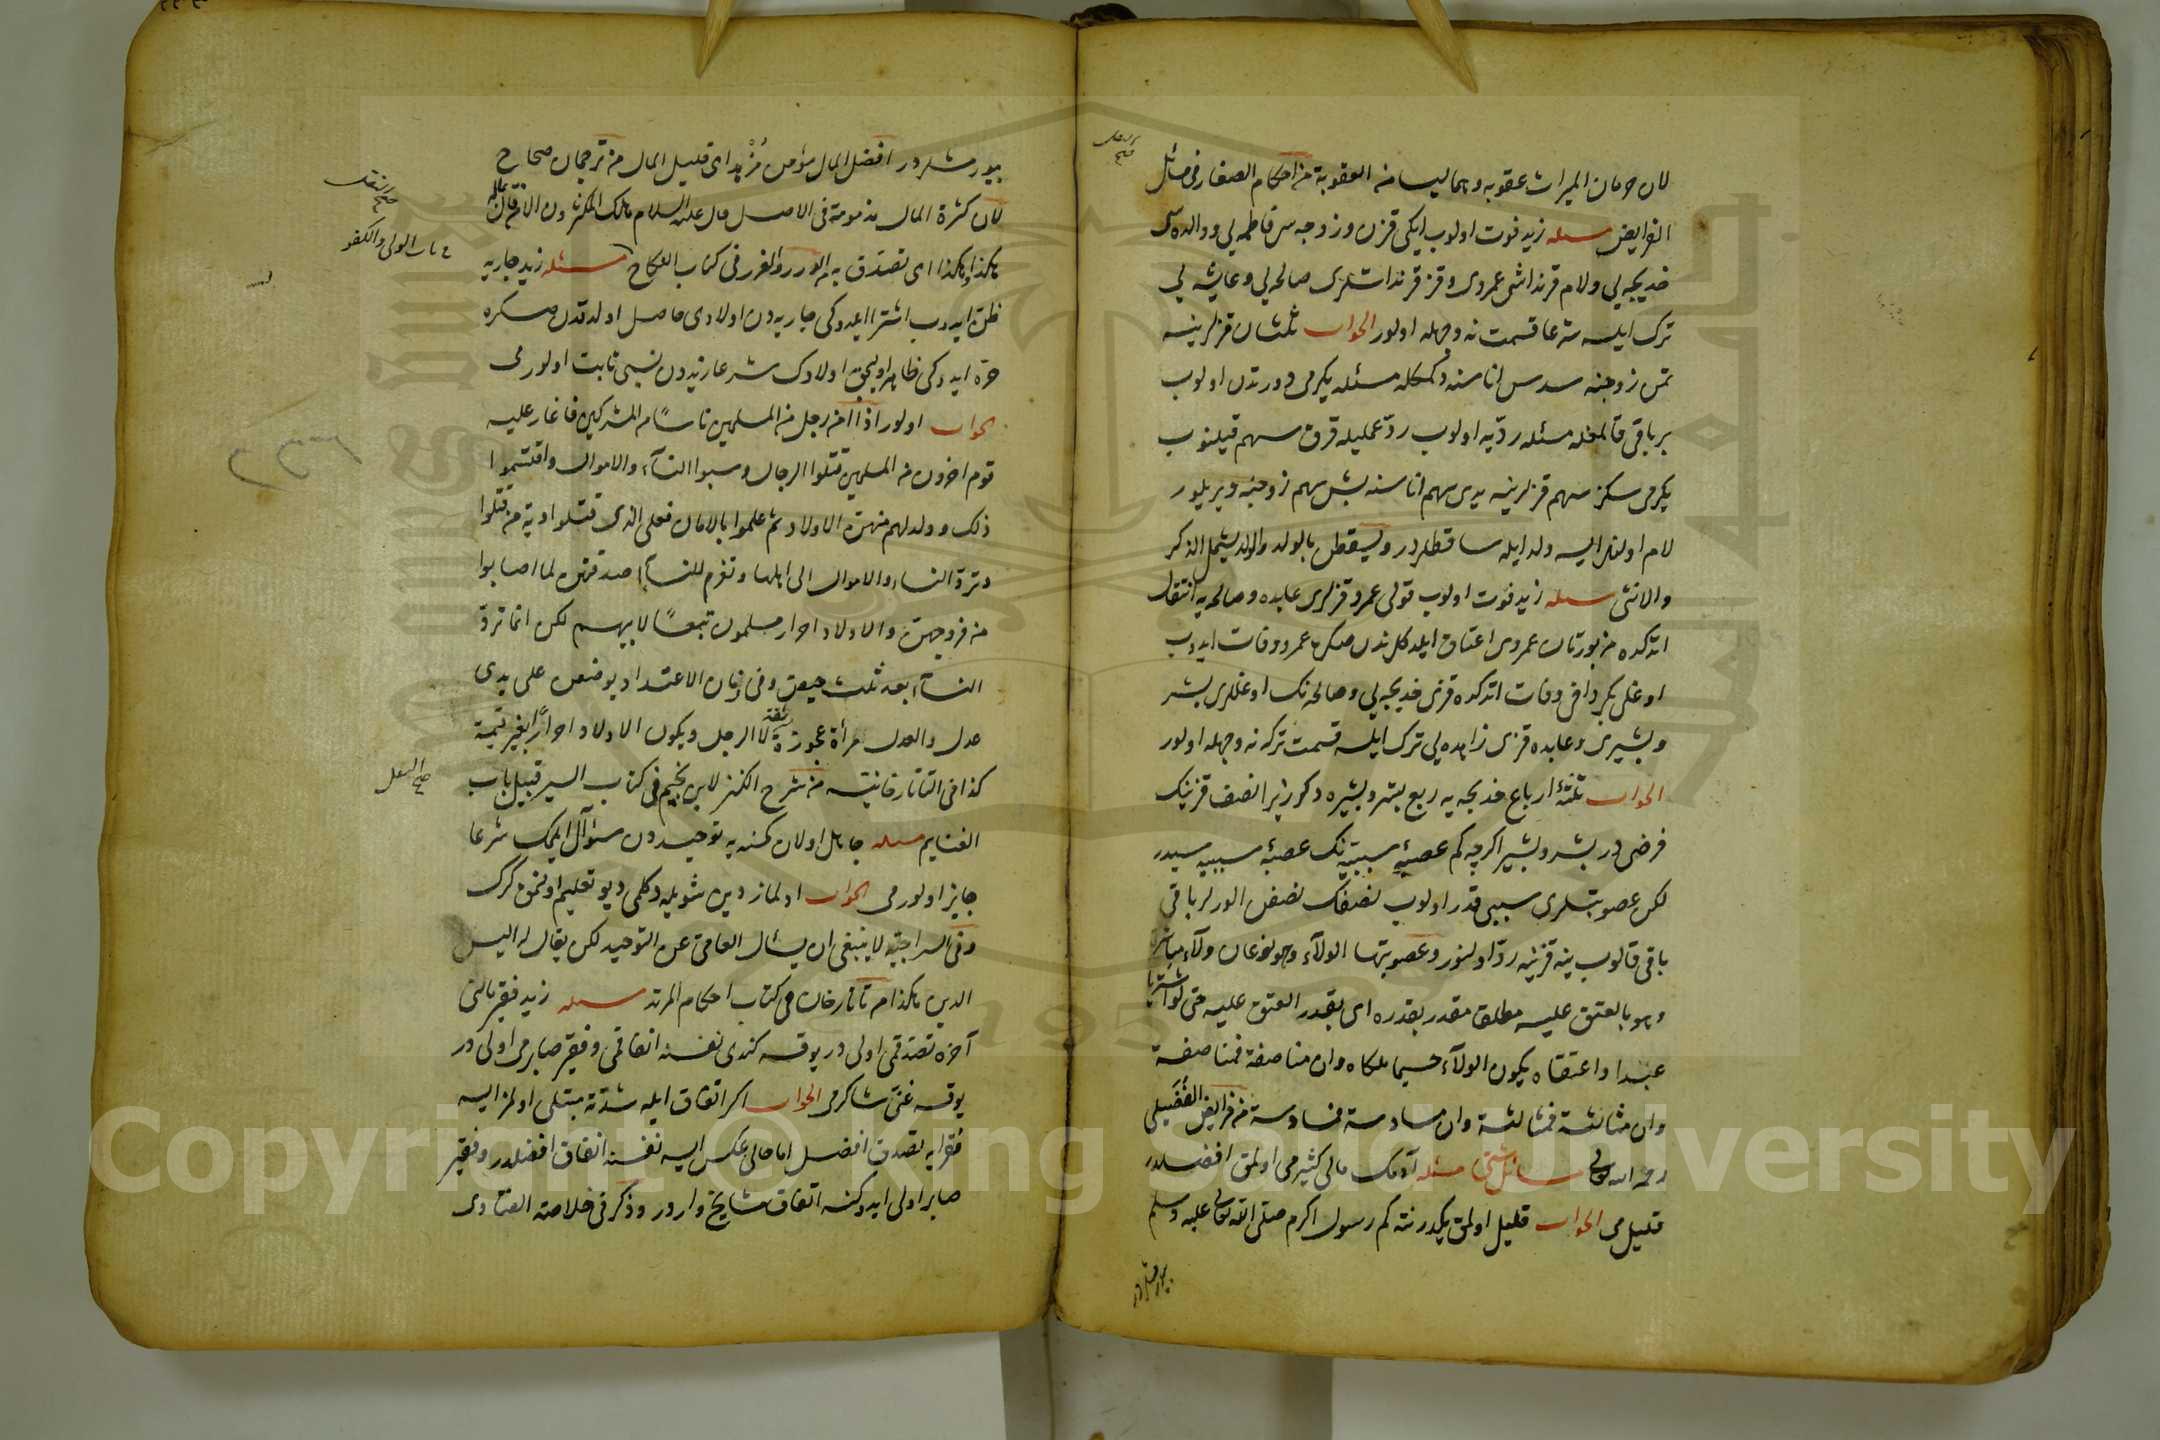 صح النقل
لان حرمان الميراث عقوبه وهما ليسا من العقوبة من احكام الصغار فى مسائل
الفرايض مسئله زيد فوت اولوب ايكى قزن و زوجه سى فاطمه يى و والده سى
خديجه يى ولام قرنداشى عمروى وقز قرنداشلرى صالحه يى وعايشه يى
ترك ايلسه شرعا قسمت نه وجهله اولور الجواب ثلثان قزلرينه
ثمن زوجنه سدس اناسنه دكمكله مسئله يكرمى دورتدن اولوب
بر باقى قالمغله مسئله رديه اولوب رد عمليله قرق سهم قيلنوب
يكرمى سكز سهم قزلرينه يدى سهم اناسنه بش سهم زوجنه ويريلور
لام اولنلر ايسه ولد ايله ساقطلردر ويسقطن بالولد والولد يشمل الذكر
والانثى مسئله زيد فوت اولوب قولى عمرو قزلرى عابده و صالحه يه انتقال
اتدكده مزبورتان عمروى اعتاق ايلدكلرندن صكره عمرو وفات ايدوب
اوغلى بكر داخى وفات اتدكده قزى خديجه يى و صالحه نك اوغللرى بشر
و بشيرى و عابده قزى زاهده يى ترك ايلسه قسمت تركه نه وجهله اولور
الجواب ثلثة ارباع خديجه يه ربع بشر و بشيره دكر زيرا نصف قزينك
فرضى در بشر و بشير اكرچه كم عصبۀ سببيه نك عصبۀ سببيه سيدر
لكن عصوبتلرى سببى قدر اولوب نصفك نصفن الورلر باقى
باقى قالوب ينه قزينه رد اولنور وعصوبتها الولآء وهو نوعان ولآء مباشرة
وهو بالعتق عليه مطلقا مقدر بقدره اى بقدر العتق عليه حتى لو اشتريا
عبدا واعتقاه يكون الولآء حسبما ملكاه وان مناصفة فمناصفة
وان مثالثة فمثالثة وان مسادسة فمسادسة من فرايض الفضيلى
رحمه الله تعالى مسائل شتى مسئله آدمك مالى كثير مى اولمق افضلدر
قليل مى الجواب قليل اولمق يكدر نته كم رسول اكرم صلى الله تعالى عليه وسلم
بيورمشلردر
بيورمشلردر افضل المال مؤمن مُزْهِد اى قليل المال من ترجمان صحاح
لان كثرة المال مذمومة فى الاصل قال عليه السلام هلك المكثرون الا من قال بماله
هكذا وهكذا اى تصدق به الدرر والغرر فى كتاب النكاح مسئله زيد جاريه
صح النقل
باب الولى والكفو
ظن ايدوب اشترا ايلدوكى جاريه دن اولادى حاصل اولدقدن صكره
حره ايدوكى ظاهر اوليجق اولادك شرعا زيددن نسبى ثابت اولور مى
الجواب اولور اذا امن رجل من المسلمين ناسًا من المشركين فاغار عليه
قوم اخرون من المسلمين قتلوا الرجال وسبوا النسآء والاموال واقتسموا
ذلك وولد لهم منهن الاولاد ثم علموا بالامان فعلى الذى قتلوا دية من قتلوا
وترد النساء والاموال الى اهلها وتغرم للنسآء صدقتهن لما اصابوا
من فروجهن والاولاد احرار مسلمون تبعًا لابيهم لكن انما ترد
النسآء بعد ثلث حيض وفى زمان الاعتداد يوضعن على يدى
عدل والعدل مرأة عجوزة ثقة لا الرجل ويكون الاولاد احرارًا بغير قيمة
كذا فى التاتارخانيه من شرح الكنز لابن نجيم فى كتاب السير قبيل باب
صح النقل
الغنايم مسئله جاهل اولان كمسنه يه توحيددن سئوال ايلمك شرعا
جايز اولور مى الجواب اولماز دين شويله دكلمى ديو تعليم اولنمق كرك
وفى السراجية لا ينبغى ان يسأل العامى عن التوحيد لكن يقال له اليس
الدين هكذا من تاتارخان فى كتاب احكام المرتد مسئله زيد فقير مالنى
آخره تصدقمى اولى در يوقسه كندى نفسنه انفاقمى وفقير صابر مى اولى در
يوقسه غنى شاكر مى الجواب اكر انفاق ايله شدته مبتلى اولمز ايسه
فقرايه تصدق افضل اما حالى عكس ايسه نفسنه انفاق افضلدر وفقير
صابر اولى ايدوكنه اتفاق مشايخ واردر وذكر فى خلاصة الفتاوى
٢٣٦
Copyright © King Saud University
1957